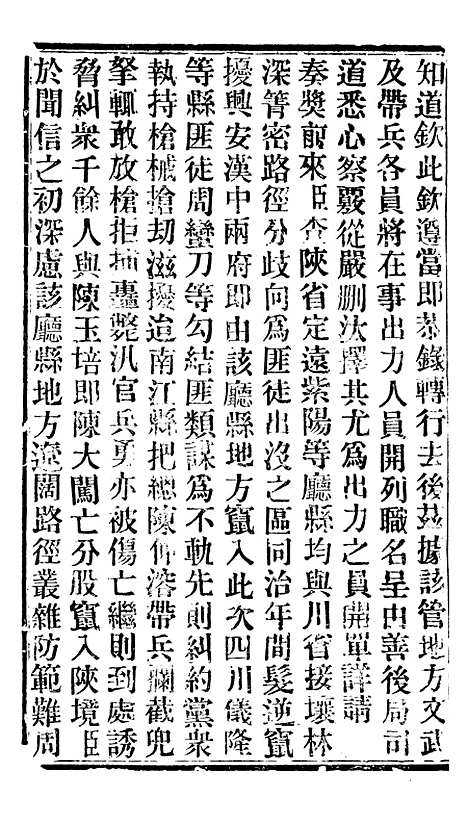 知道欽此欽遵當即恭錄轉行去後茲據該管地方文武
及帶兵各員將在事出力人員開列職名呈由善後局司
道悉心察覈從嚴刪汰擇其尤為出力之員開單詳請
奏獎前來臣查陝省定遠紫陽等廳縣均與川省接壤林
深箐密路徑分歧向為匪徒出沒之區同治年間髮逆竄
擾興安漢中兩府即由該廳縣地方竄入此次四川儀隴
等縣匪徒周蠻刀等勾結匪類謀為不軌先則糾約黨衆
執持槍械搶刼滋擾迨南江縣把總陳仰溶帶兵攔截兜
拏輒敢放槍拒捕轟斃汛官兵勇亦被傷亡繼則到處誘
脅糾衆千餘人與陳玉培即陳大闖亡分股竄入陝境臣
於聞信之初深慮該廳縣地方遼闊路徑叢雜防範難周